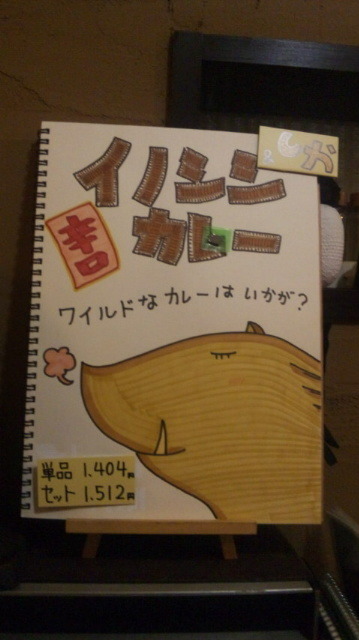 イノシシ
&しか
カレー
辛口
ワイルドなカレーはいかが？
単品 1.404円
セット 1.512円